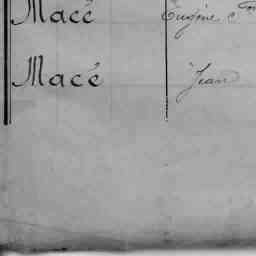 Macé Eugène
Macé Jean